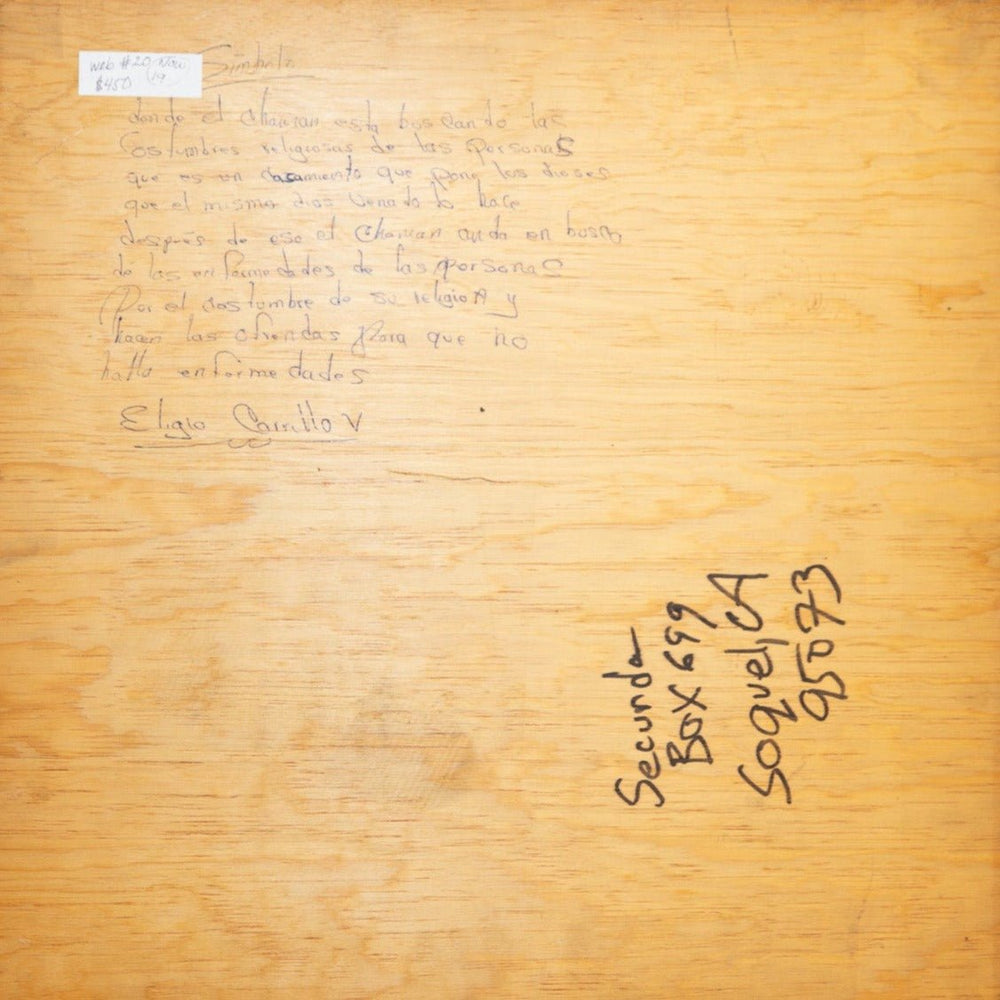 web #20 Nov
$450 19
Simbolo
donde el chaman esta buscando las
Costumbres religiosas de las personas
que es un casamiento que pone los dioses
que el mismo dios venado lo hace
después de eso el chaman anda en busca
de las enfermedades de las personas
Por el costumbre de su religion y
hacen las ofrendas para que no
halla enformedades
Eligio Carrillo V
Secunda
Box 699
Soquel, CA
95073